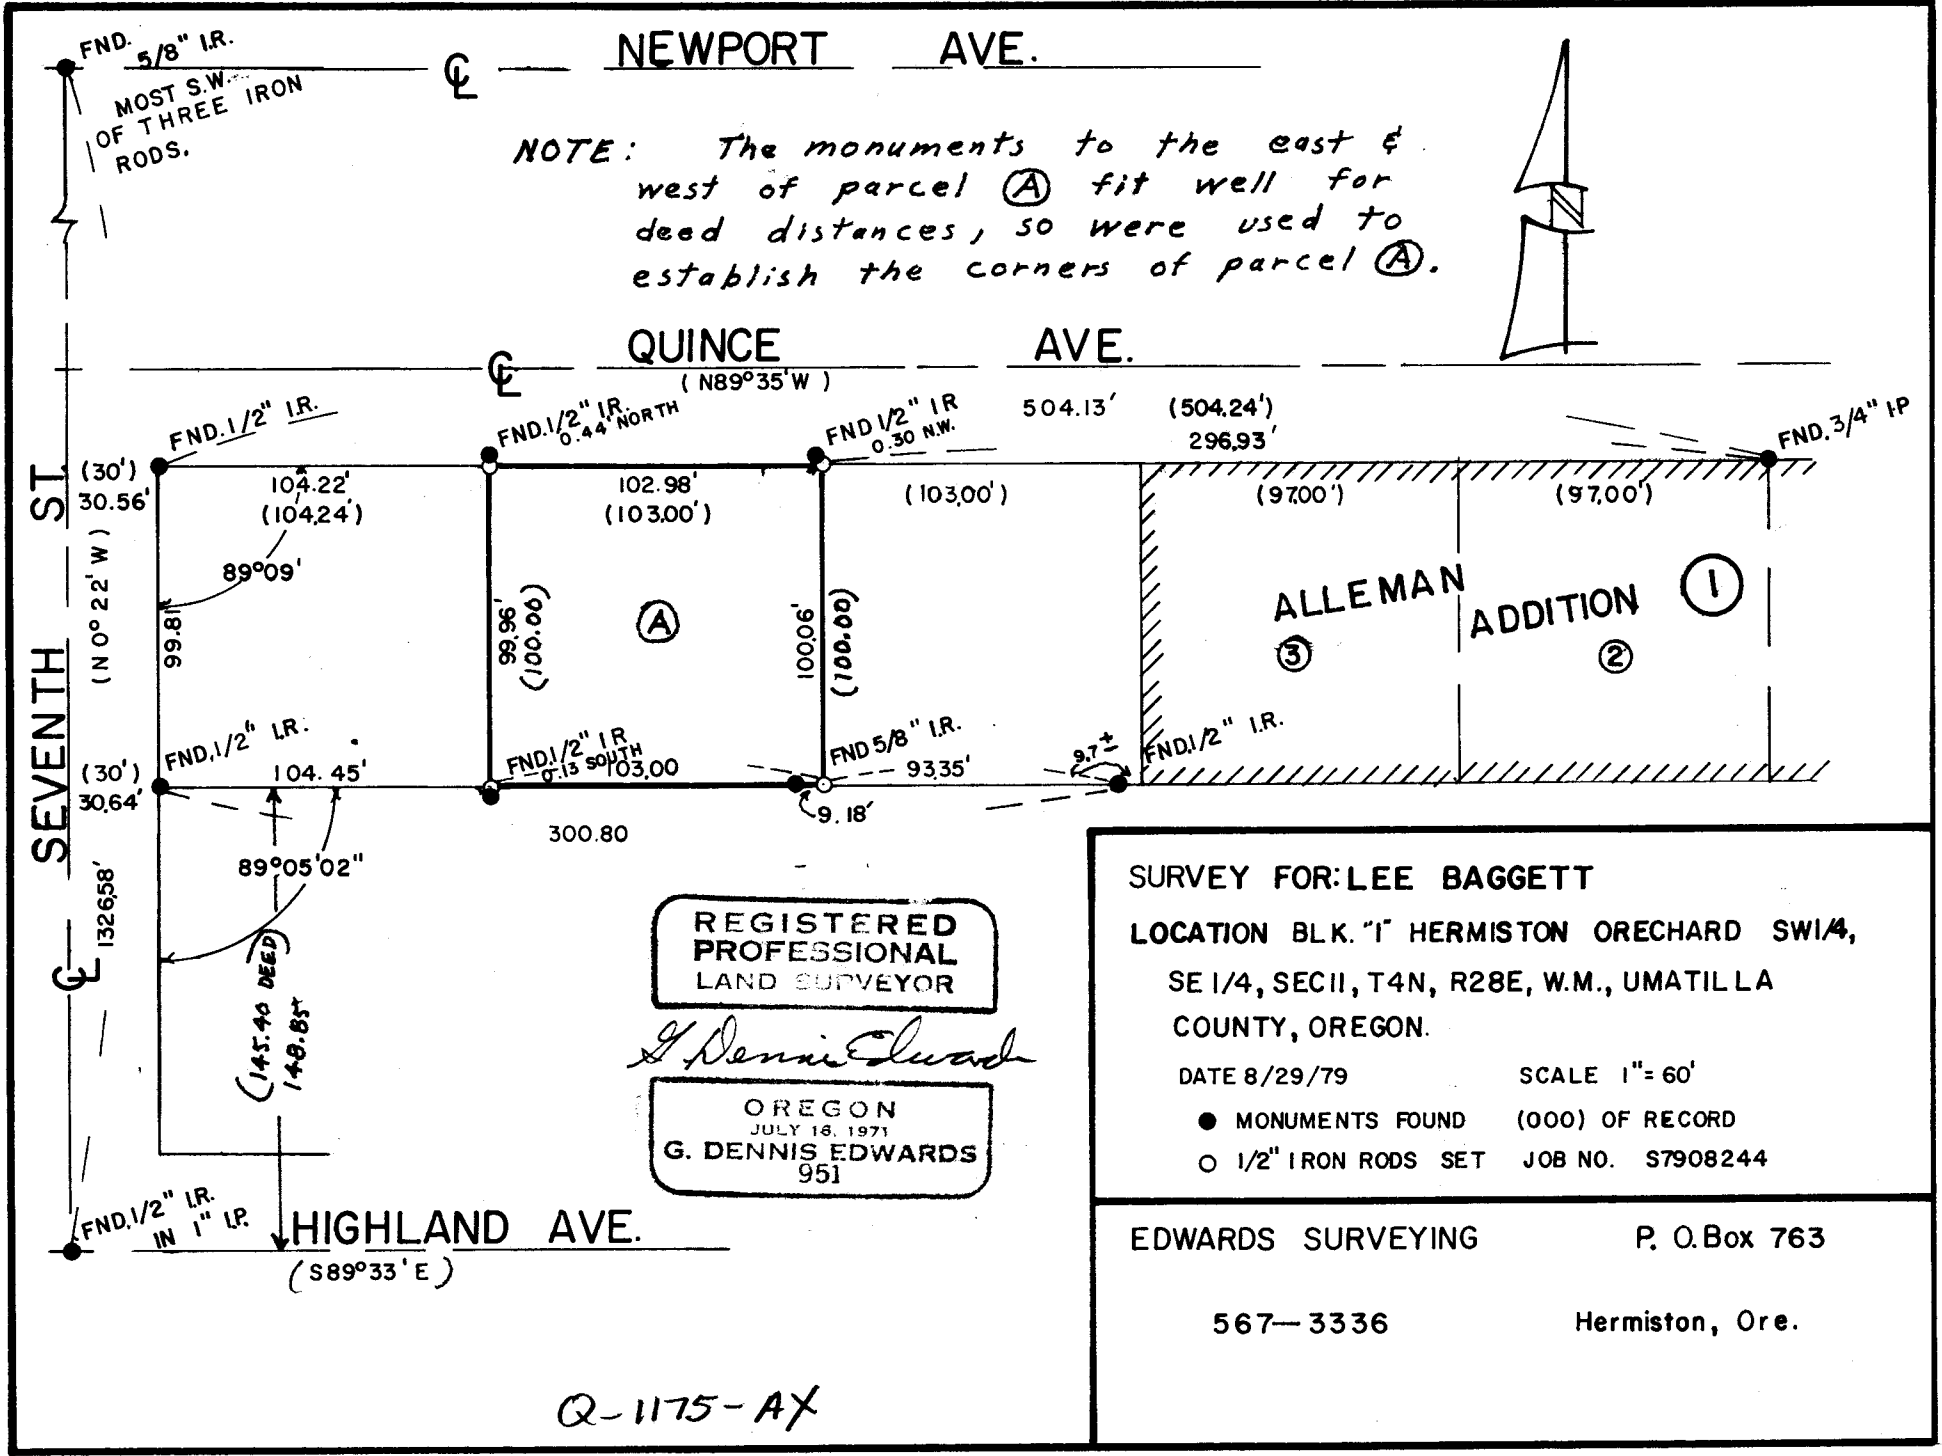 FND. 5/8" I.R.
MOST S.W.
OF THREE IRON
RODS.
℄
NEWPORT AVE.
NOTE: The monuments to the east &
west of parcel Ⓐ fit well for
deed distances, so were used to
establish the corners of parcel Ⓐ.
℄
QUINCE AVE.
(N89°35'W)
FND. 1/2" I.R.
FND. 1/2" I.R.
0.44' NORTH
FND 1/2" IR
0.30 N.W.
504.13' (504.24')
296.93'
FND. 3/4" I.P
(30')
30.56'
104.22'
(104.24')
102.98'
(103.00')
(103.00')
(97.00')
(97.00')
SEVENTH ST.
℄
(N0°22'W)
1326.58'
89°09'
99.81'
99.96'
(100.00)
Ⓐ
100.06'
(100.00)
ALLEMAN ADDITION ①
③
②
(30')
30.64'
FND. 1/2" I.R.
104.45'
FND. 1/2" IR
0.13 SOUTH
103.00
FND 5/8" I.R.
93.35'
9.7±
FND. 1/2" I.R.
9.18'
300.80
89°05'02"
(145.40 DEED)
148.85
REGISTERED
PROFESSIONAL
LAND SURVEYOR
G Dennis Edwards
OREGON
JULY 16, 1971
G. DENNIS EDWARDS
951
FND. 1/2" I.R.
IN 1" I.P.
HIGHLAND AVE.
(S89°33'E)
SURVEY FOR: LEE BAGGETT
LOCATION BLK. "1" HERMISTON ORECHARD SW1/4,
SE 1/4, SEC11, T4N, R28E, W.M., UMATILLA
COUNTY, OREGON.
DATE 8/29/79 SCALE 1"= 60'
● MONUMENTS FOUND (000) OF RECORD
○ 1/2" IRON RODS SET JOB NO. S7908244
EDWARDS SURVEYING P. O. Box 763
567—3336 Hermiston, Ore.
Q-1175-AX